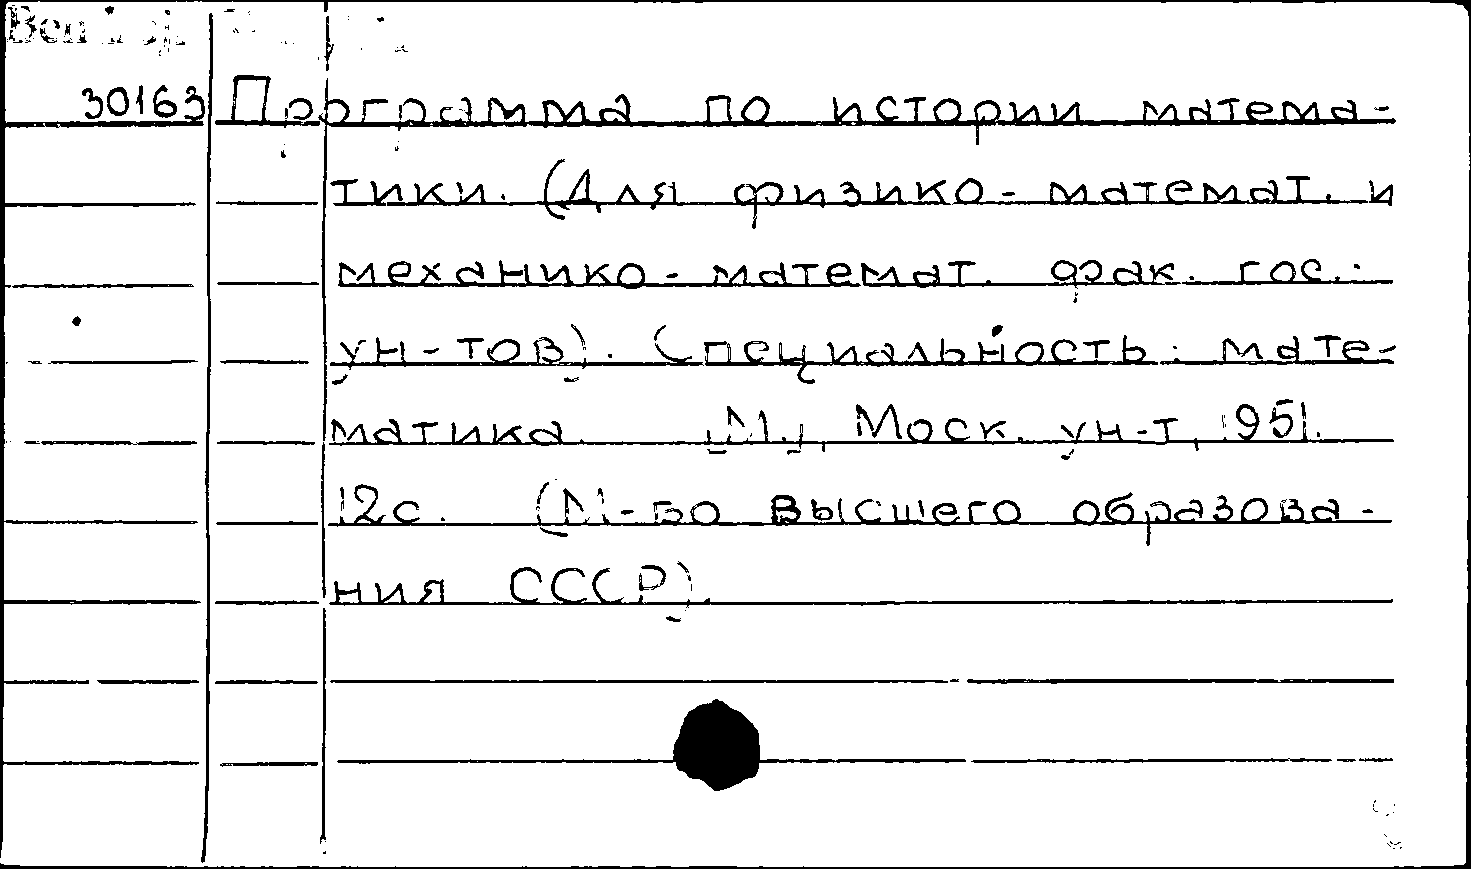 30163 Программа по истории матема-
тики. (Для физико-математ. и
механико-математ. фак. гос.
ун-тов). Специальность: мате-
матика. [М.], Моск. ун-т, 1951.
12с. (М-во высшего образова-
ния СССР).